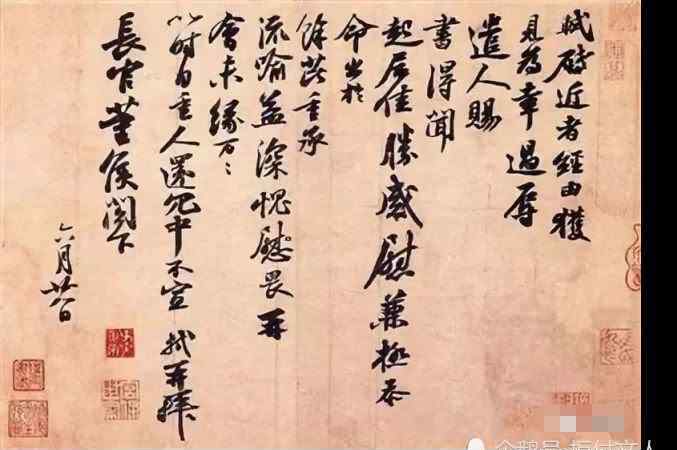 軾啓近者經由獲
見為幸過辱
遣人賜
書得聞
起居佳勝感慰兼極忝
命出於
餘芘重承
流喻益深愧慰畏再
會未緣万〻
以時自重人還冗中不宣 軾再拜
長官董侯閣下
六月廿八日
企鹅号